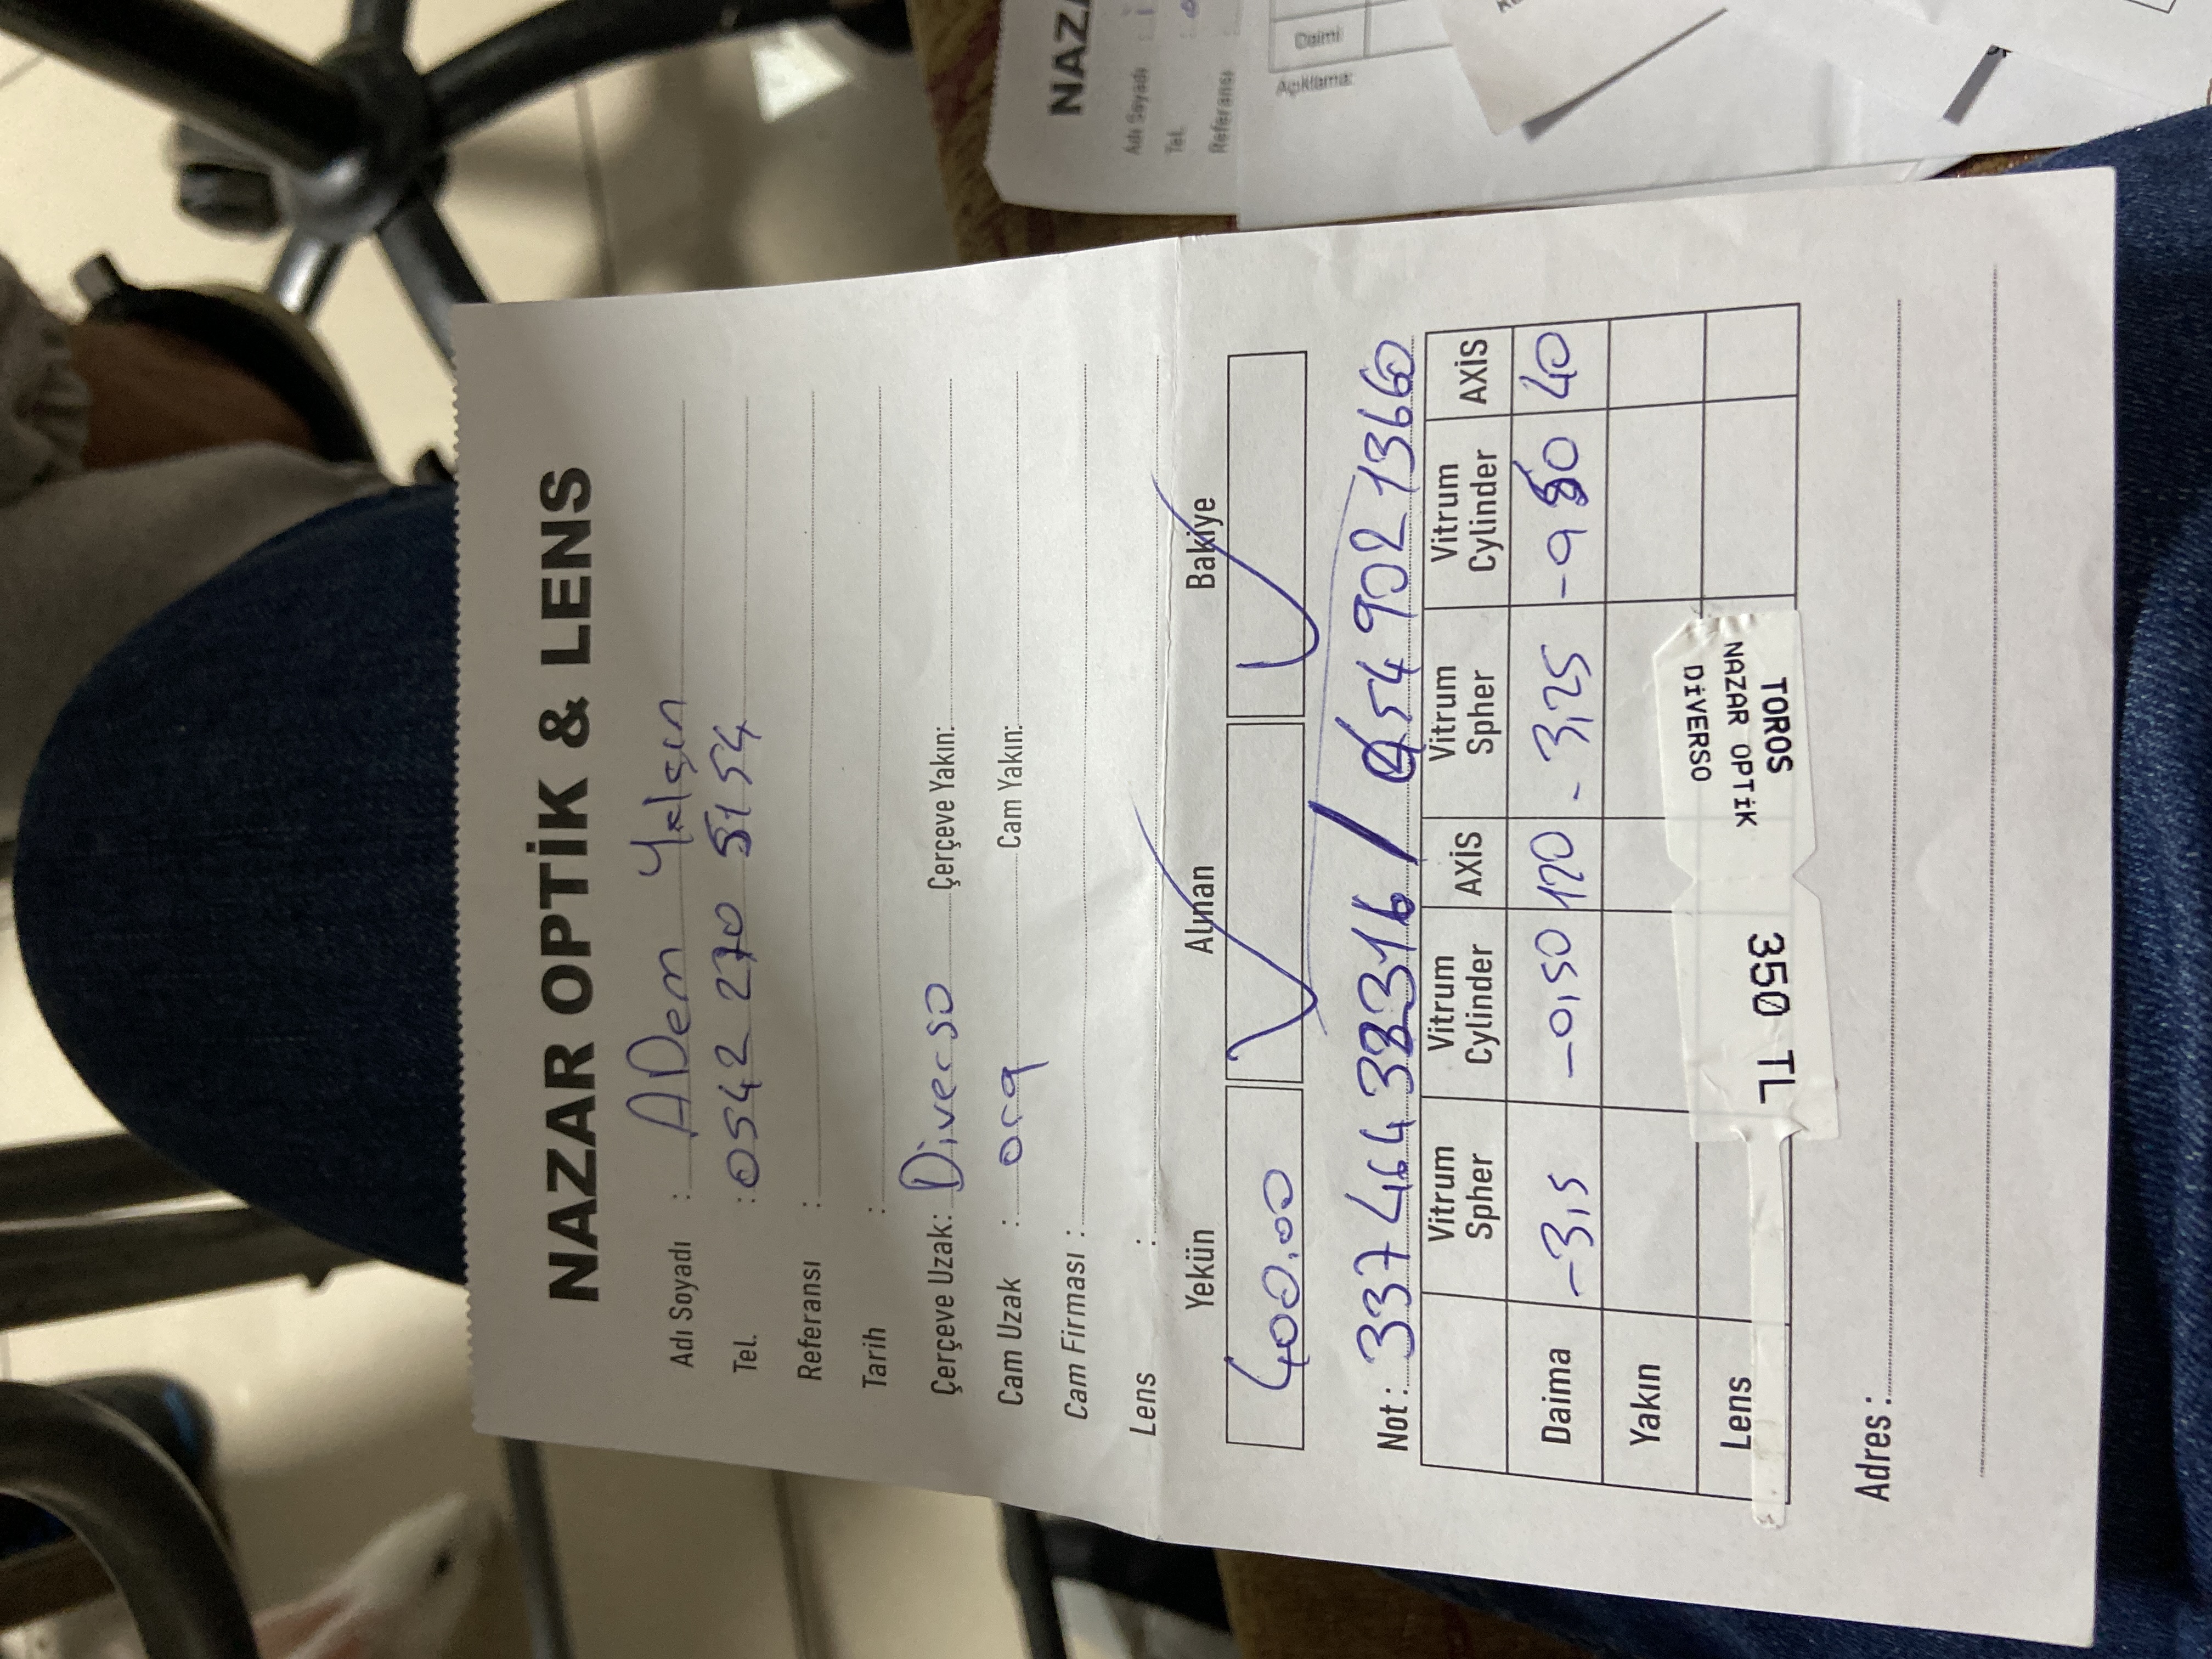 NAZAR OPTİK & LENS
Adı Soyadı : ADem Yalçın
Tel. : 0542 270 5154
Referansı :
Tarih :
Çerçeve Uzak: Diverso Çerçeve Yakın:
Cam Uzak : org Cam Yakın:
Cam Firması :
Lens :
Yekün Alınan Bakiye
400.00
Not : / 
Vitrum Spher Vitrum Cylinder AXİS Vitrum Spher Vitrum Cylinder AXİS
Daima -3,5 -0,50 120 - 3,25 40
Yakın
Lens
TOROS
NAZAR OPTİK
DİVERSO
350 TL
Adres :
NAZA
Adı Soyadı
Tel.
Referansı
Açıklama
Daimi